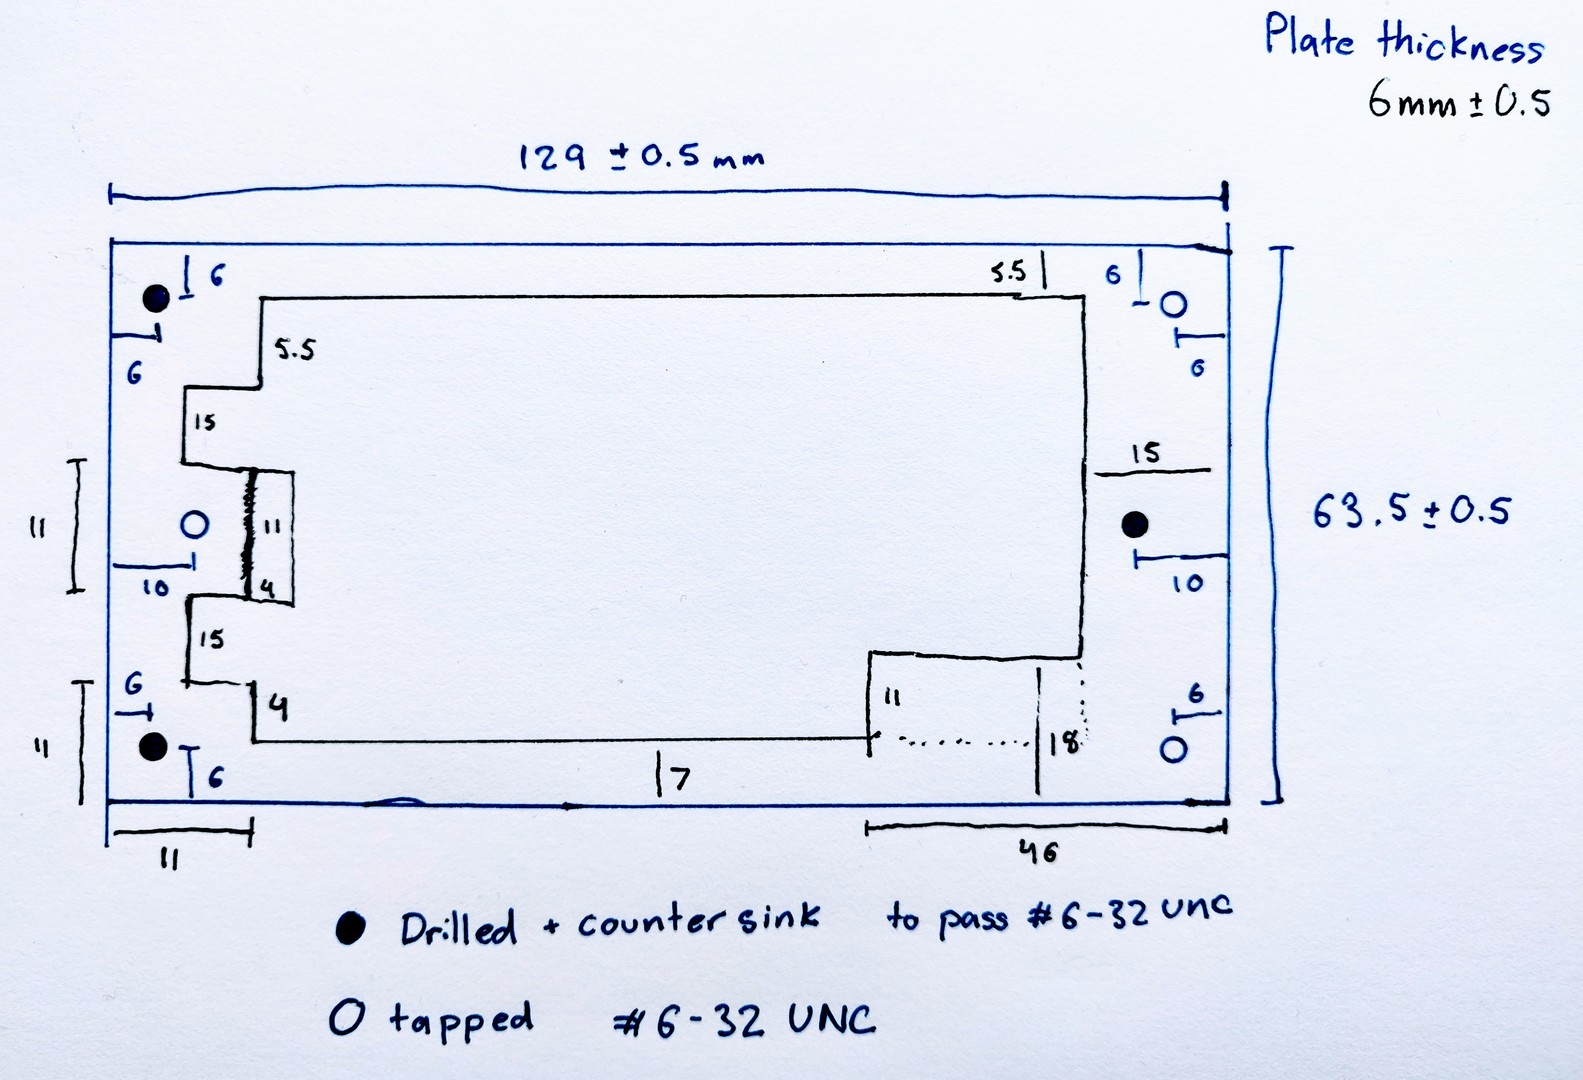 Plate thickness
6mm ± 0.5
129 ± 0.5 mm
6
5.5
6
6
5.5
6
15
15
11
11
10
4
10
63.5 ± 0.5
15
6
11
6
4
11
18
6
7
11
46
Drilled + counter sink to pass #6-32 UNC
tapped #6-32 UNC